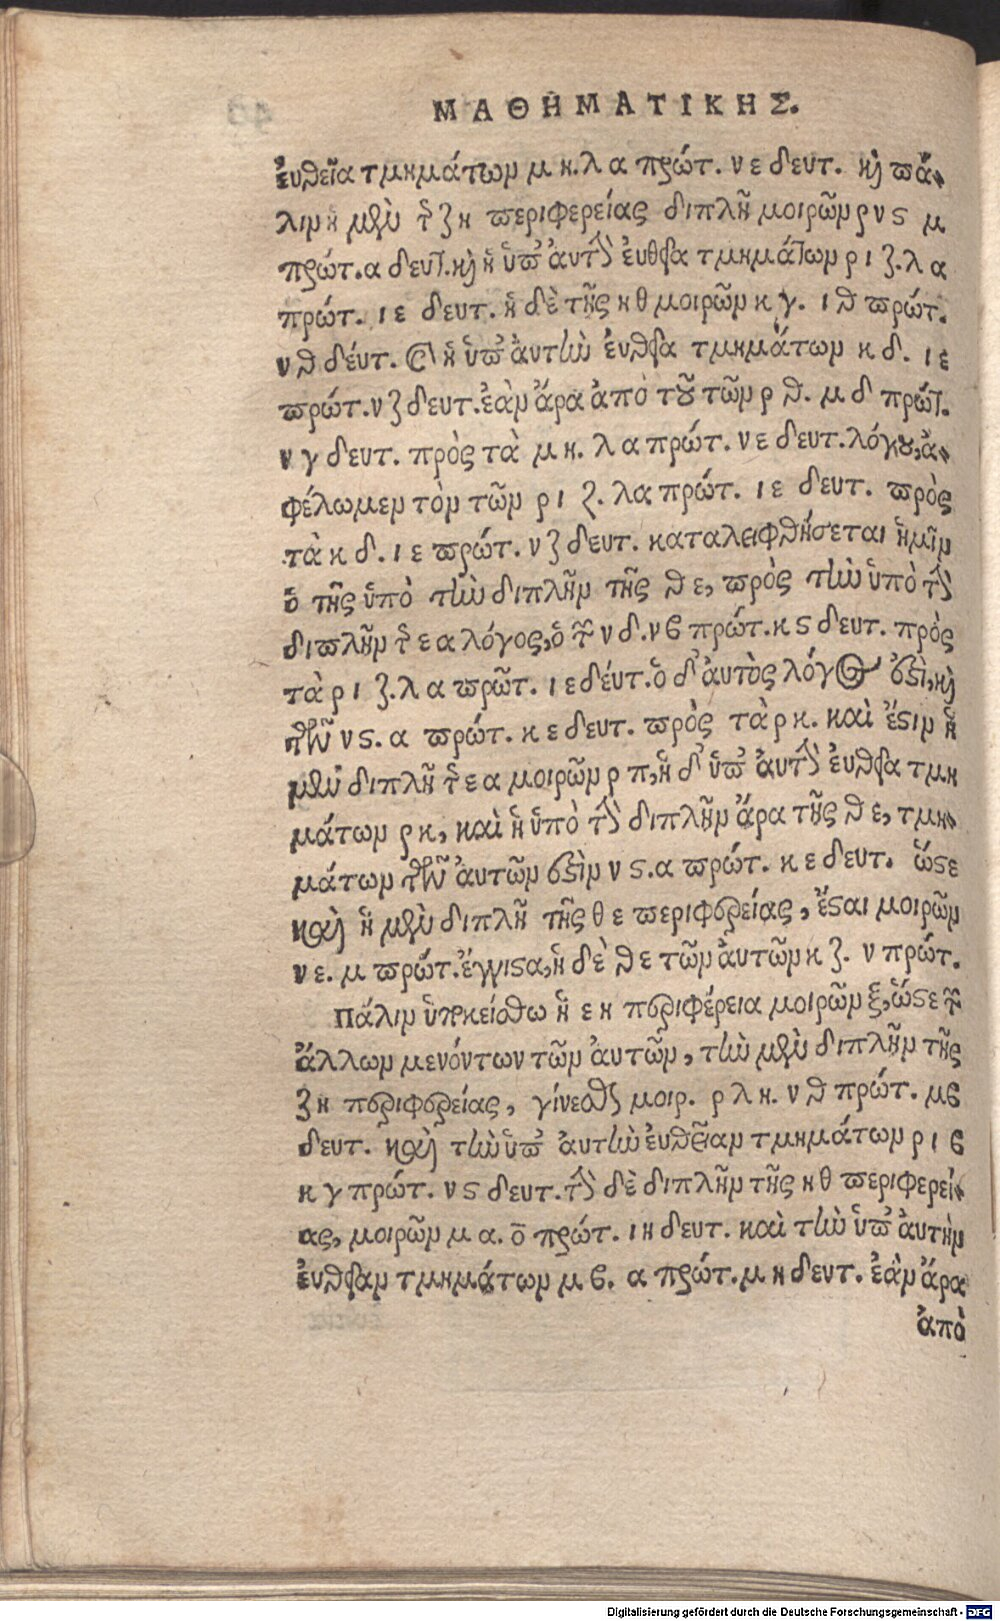 ΜΑΘΗΜΑΤΙΚΗΣ.
ἐυθεῖα τμημάτων μ η. λ α πρώτ. ν ε δευτ. κὶ πά-
λιν ἡ μὲν τ̃ ζ η περιφερείας διπλῆ μοιρῶν ρ ν ς μ
πρώτ. α δευτ. κὶ ἡ ὑπ' ἀυτὴν ἐυθεῖα τμημάτων ρ ι ζ. λ α
πρώτ. ι ε δευτ. ἡ δὲ τῆς η θ μοιρῶν κ γ. ι θ πρώτ.
ν θ δέυτ. καὶ ἡ ὑπ' ἀυτὴν ἐυθεῖα τμημάτων κ δ. ι ε
πρώτ. ν ζ δευτ. ἐὰν ἄρα ἀπὸ τοῦ τῶν ρ θ. μ δ πρώτ.
ν γ δευτ. πρὸς τὰ μ η. λ α πρώτ. ν ε δευτ. λόγου, ἀ-
φέλωμεν τὸν τῶν ρ ι ζ. λα πρώτ. ι ε δευτ. πρὸς
τὰ κ δ. ι ε πρώτ. ν ζ δευτ. καταλειφθήσεται ἡμῖν
ὁ τῆς ὑπὸ τὴν διπλῆν τῆς θ ε, πρὸς τὴν ὑπὸ τὴν
διπλῆν τ̃ ε α λόγος, ὁ τ̃ ν δ. ν ϐ πρώτ. κ ς δευτ. πρὸς
τὰ ρ ι ζ. λ α πρῶτ. ι ε δέυτ. ὁ δ' ἀυτὸς λόγος ἐστὶ, κὶ
τῶν ν ς. α πρώτ. κ ε δευτ. πρὸς τὰ ρ κ. καὶ ἔστιν ἡ
μὲν διπλῆ τ̃ ε α μοιρῶν ρ π, ἡ δ' ὑπ' ἀυτὴν ἐυθεῖα τμη
μάτων ρ κ, καὶ ἡ ὑπὸ τὴν διπλῆν ἄρα τῆς θ ε, τμη-
μάτων τῶν ἀυτῶν ἐστὶν ν ς. α πρώτ. κ ε δευτ. ὥστε
καὶ ἡ μὲν διπλῆ τῆς θ ε περιφερείας, ἔσται μοιρῶν
ν ε. μ πρώτ. ἔγγιστα, ἡ δὲ θ ε τῶν ἀυτῶν κ ζ. ν πρώτ.
Πάλιν ὑποκείσθω ἡ ε η περιφέρεια μοιρῶν ξ, ὥστε τ̃
ἄλλων μενόντων τῶν ἀυτῶν, τὴν μὲν διπλῆν τῆς
ζ η περιφερείας, γίνεσθαι μοιρ. ρ λ η. ν θ πρώτ. μ ϐ
δευτ. καὶ τὴν ὑπ' ἀυτὴν ἐυθεῖαν τμημάτων ρ ι ϐ
κ γ πρώτ. ν ς δευτ. τὴν δὲ διπλῆν τῆς η θ περιφερεί-
ας, μοιρῶν μ α. ο̄ πρώτ. ι η δευτ. καὶ τὴν ὑπ' ἀυτὴν
ἐυθεῖαν τμημάτων μ ϐ. α πρώτ. μ η δευτ. ἐὰν ἄρα
ἀπὸ
Digitalisierung gefördert durch die Deutsche Forschungsgemeinschaft - DFG